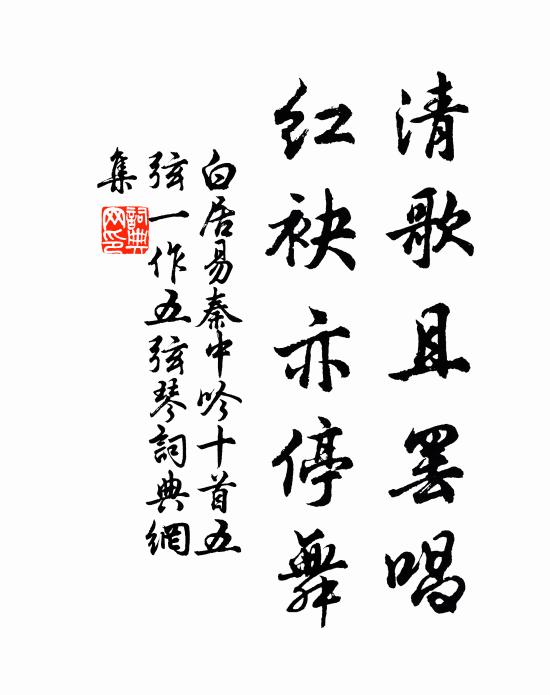 清歌且罢唱
红袂亦停舞
白居易秦中吟十首五
弦一作五弦琴詞典網
集
詞典
网印